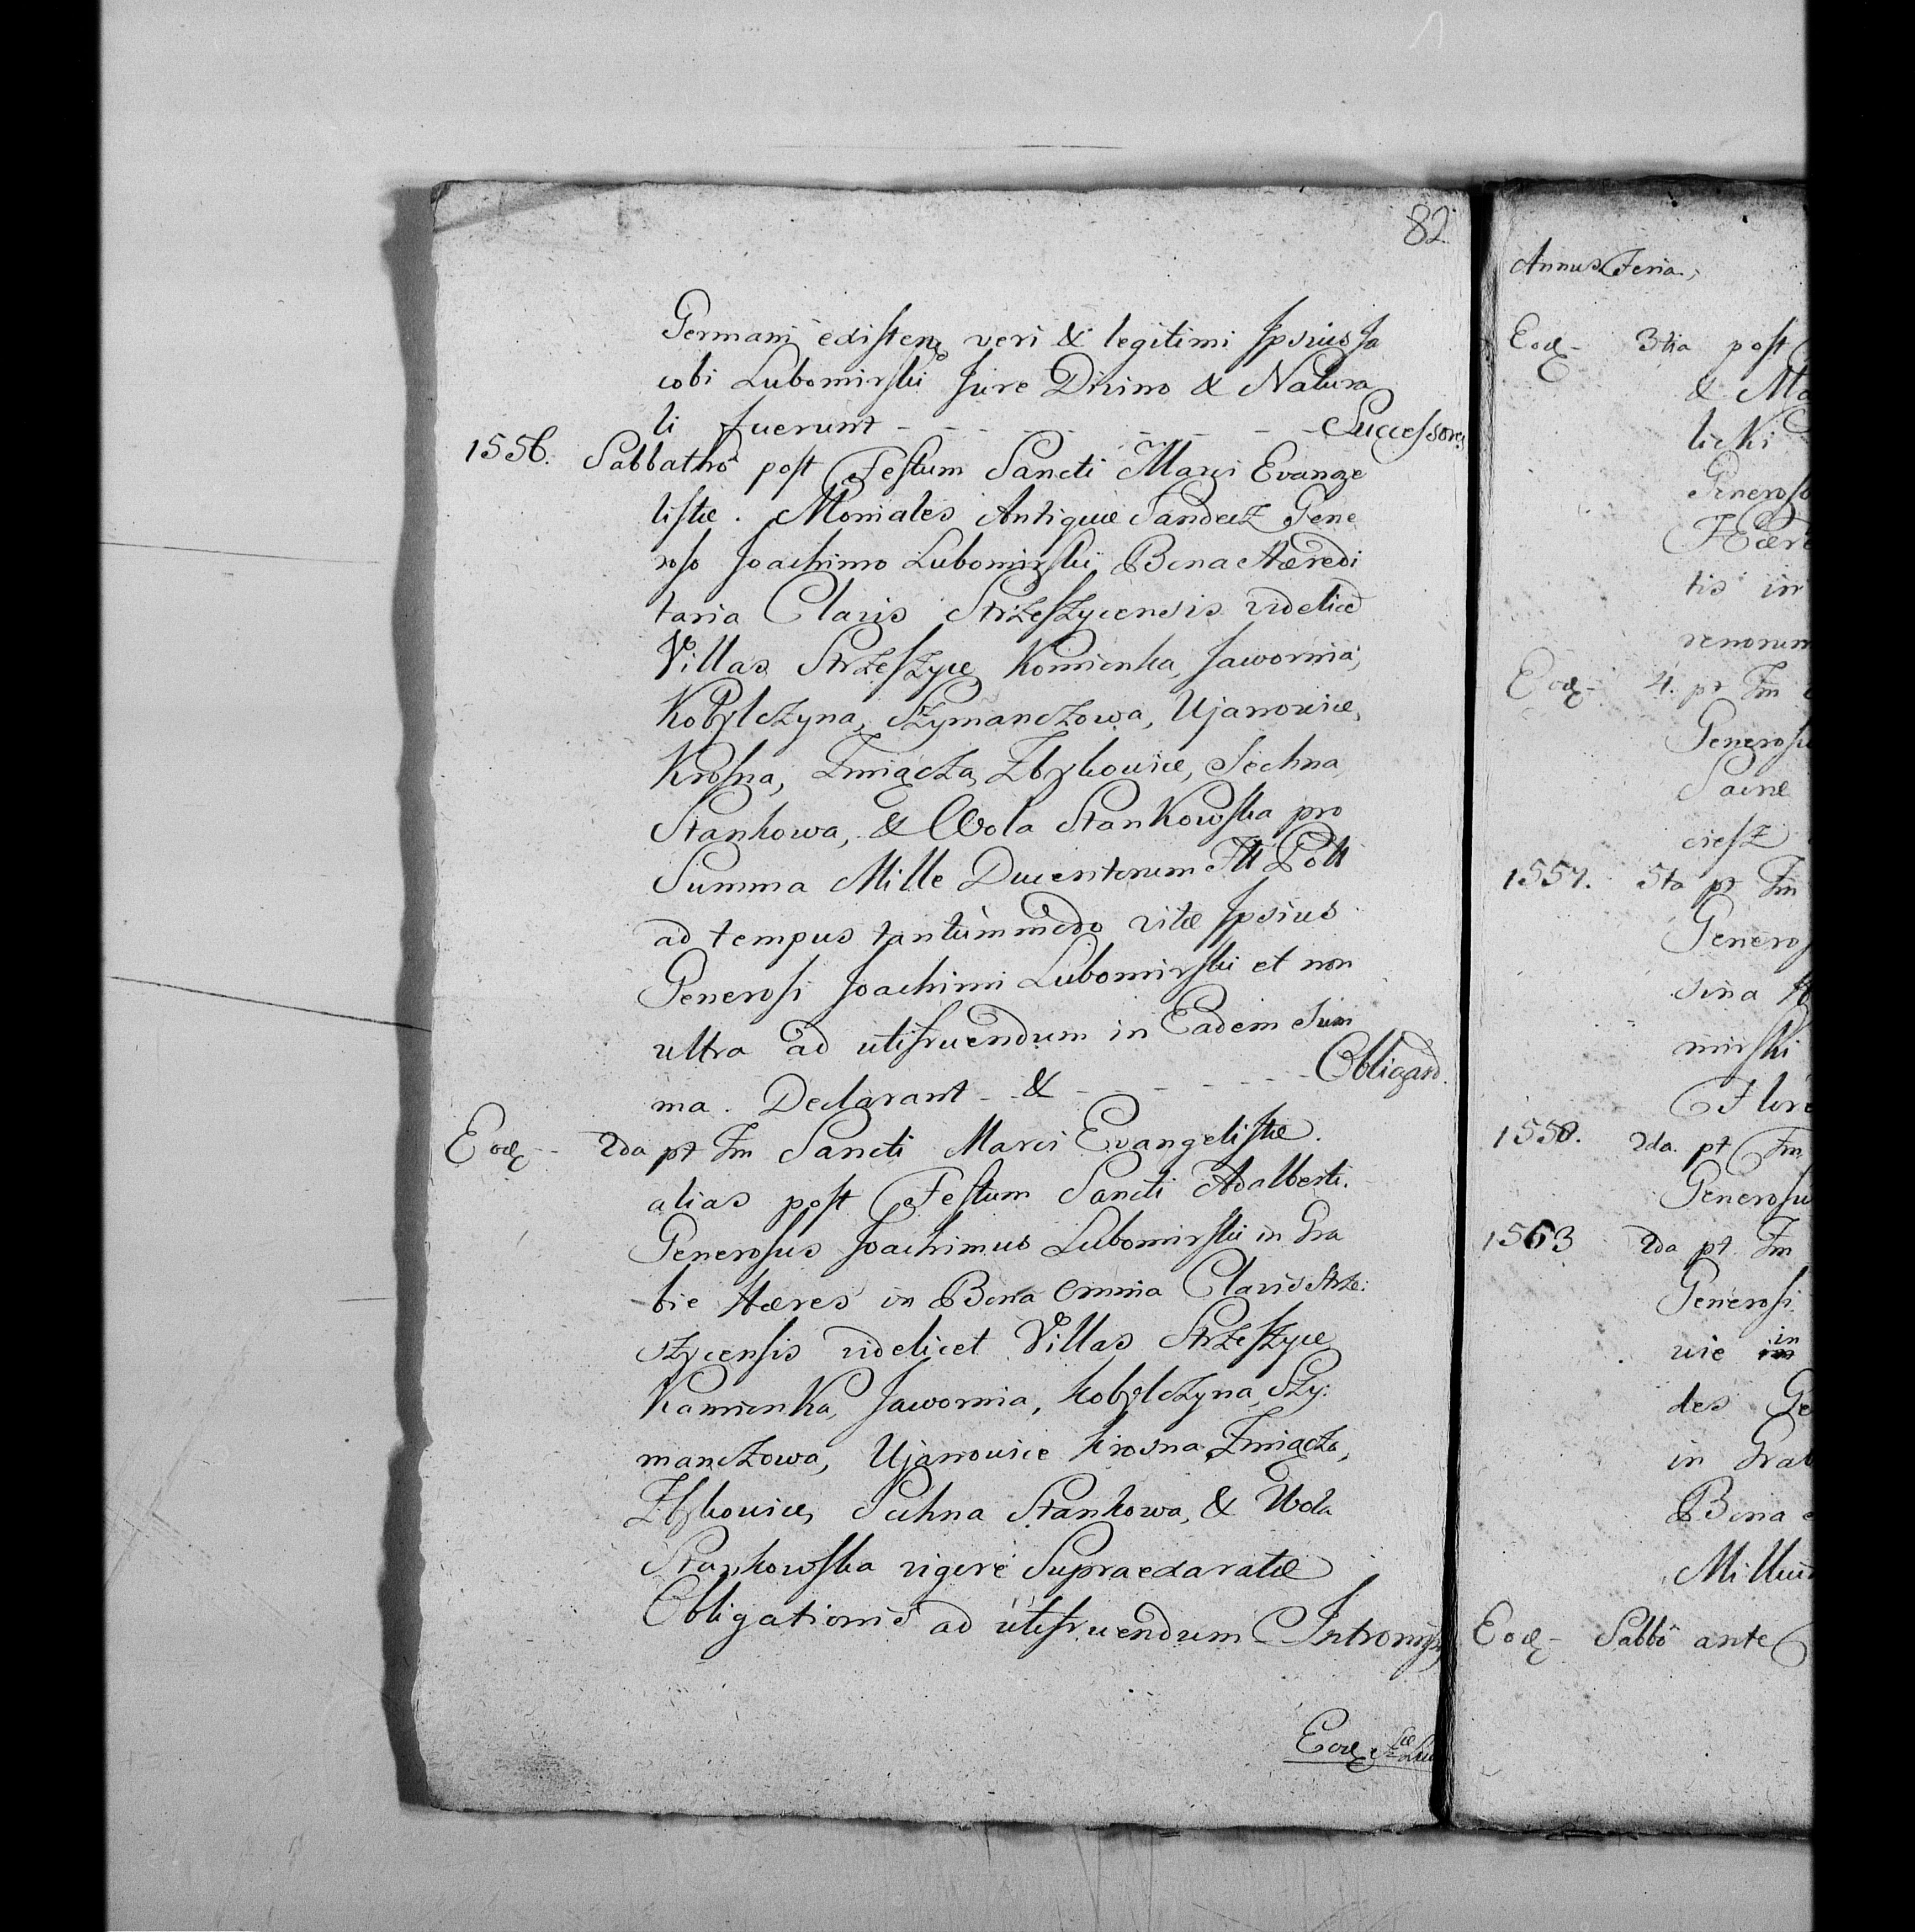 82
Germani existen veri & legitimi Ipsius Ja
cobi Lubomirski Jure Divino & Natura
li fuerunt - - - - - - - - - Successores
1556. Sabbathô post Festum Sancti Marci Evange
listæ. Moniales Antiquæ Sandecz Gene
roso Joachimo Lubomirski Bona Hæredi
taria Clavis Strzeszycensis videlicet
Villas Strzeszyce Komienka, Jawornia,
Kobylczyna, Szymanczowa, Ujanowice,
Krosna, Zmiącza, Zbykowice, Sechna
Stankowa, & Wola Stankowska pro
Summa Mille Ducentorum Fll Poll
ad tempus tantùmmodo vitæ Ipsius
Generosi Joachimi Lubomirski et non
ultra ad utifruendum in Eadem Sum
ma. Declarant - & - - - - - - Obligand.
Eod - 2da pt Fm Sancti Marci Evangelistæ.
alias post Festum Sancti Adalberti.
Generosus Joachimus Lubomirski in Gra
bie Hæres in Bona omnia Clavis Strze:
szycensis videlicet Villas Strzeszyce
Kamienka, Jawornia, Kobylczyna, Szy:
manczowa, Ujanowice Krosna Zmiącza,
Zbykowice, Sechna Stankowa, & Wola
Stankowska vigore Supraexaratæ
Obligationis ad utifruendum Intromiss
Eod
Annus Feria,
Eod - 3tia post
& Ma
licki
Generoso
Hære
tis in
renorum
Eod - 4. pt Fm
Generosu
Saine
ciesz
1557. 5ta pt Fm
Generos
sina
mirski
Flore
1558. 2da. pt Fm
Generosu
1563 2da pt Fm
Generosi
in
vie
des Ge
in Grab
Bona
Millium
Eod - Sabbô ante